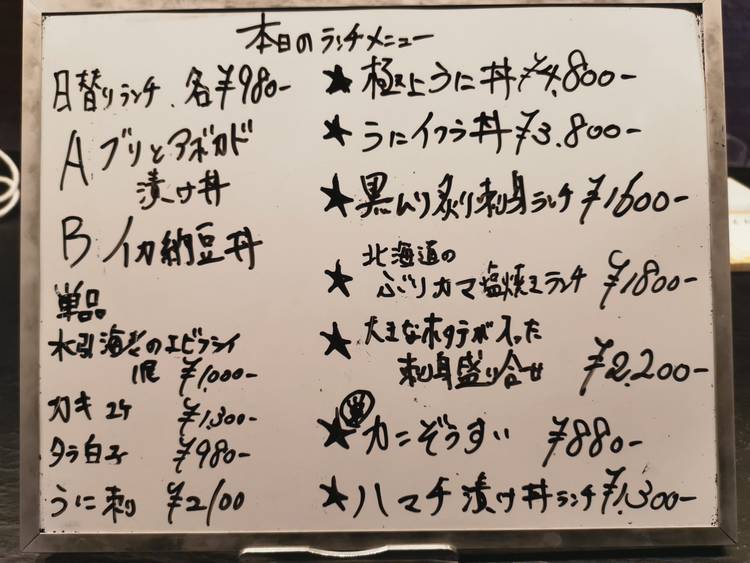 本日のランチメニュー
日替りランチ 各¥980-
A ブリとアボカド
漬け丼
B イカ納豆丼
単品
海老のエビフライ
1尾 ¥1,000-
カキ 2ケ ¥1,300-
タラ白子 ¥980-
うに刺 ¥2100
★ 極上うに丼 ¥4,800-
★ うにイクラ丼 ¥3,800-
★ 黒ムツ炙り刺身ランチ ¥1600-
★ 北海道の
ぶりカマ塩焼きランチ ¥1800-
★ 大きなホタテが入った
刺身盛り合せ ¥2,200-
★ カニぞうすい ¥880-
★ ハマチ漬け丼ランチ ¥1,300-